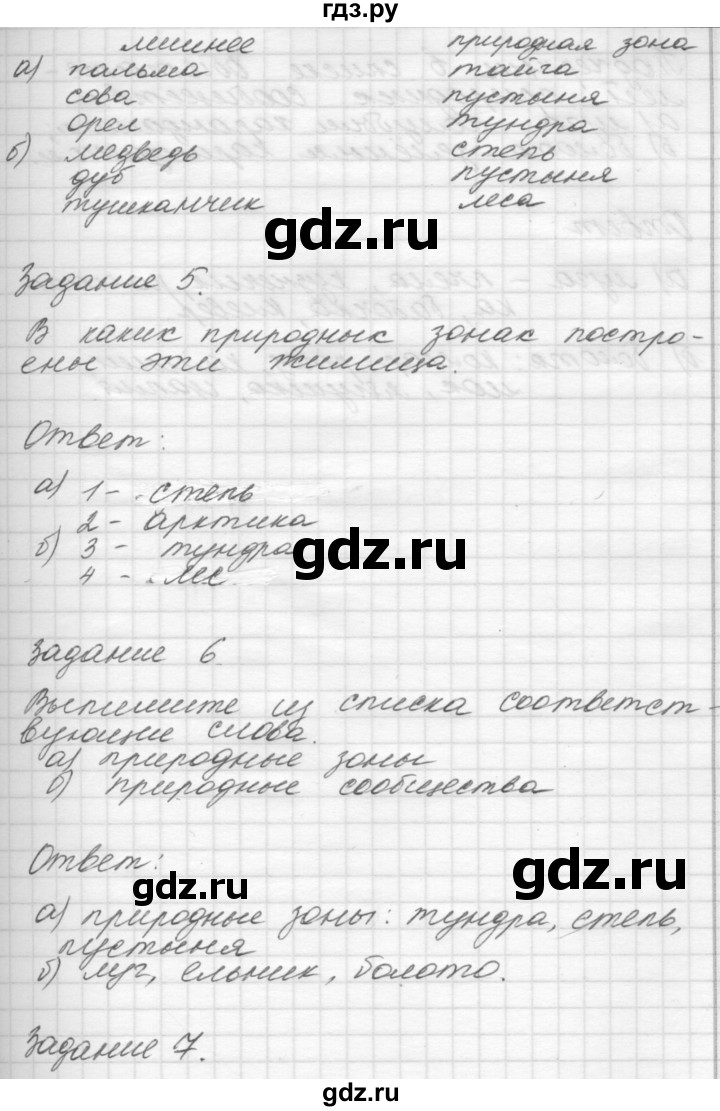 гдз.ру
лишнее природная зона
а) пальма тайга
сова пустыня
орел тундра
б) медведь степь
дуб пустыня
тушканчик леса
gdz.ru
Задание 5.
В каких природных зонах постро-
ены эти жилища.
Ответ:
а) 1 - степь
2 - арктика
б) 3 - тундра
gdz.ru
4 - лес
Задание 6.
Выпишите из списка соответст-
вующие слова.
а) природные зоны
б) природные сообщества
Ответ:
gdz.ru
gdz.ru
а) природные зоны: тундра, степь,
пустыня
б) луг, ельник, болото.
Задание 7.
gdz.ru